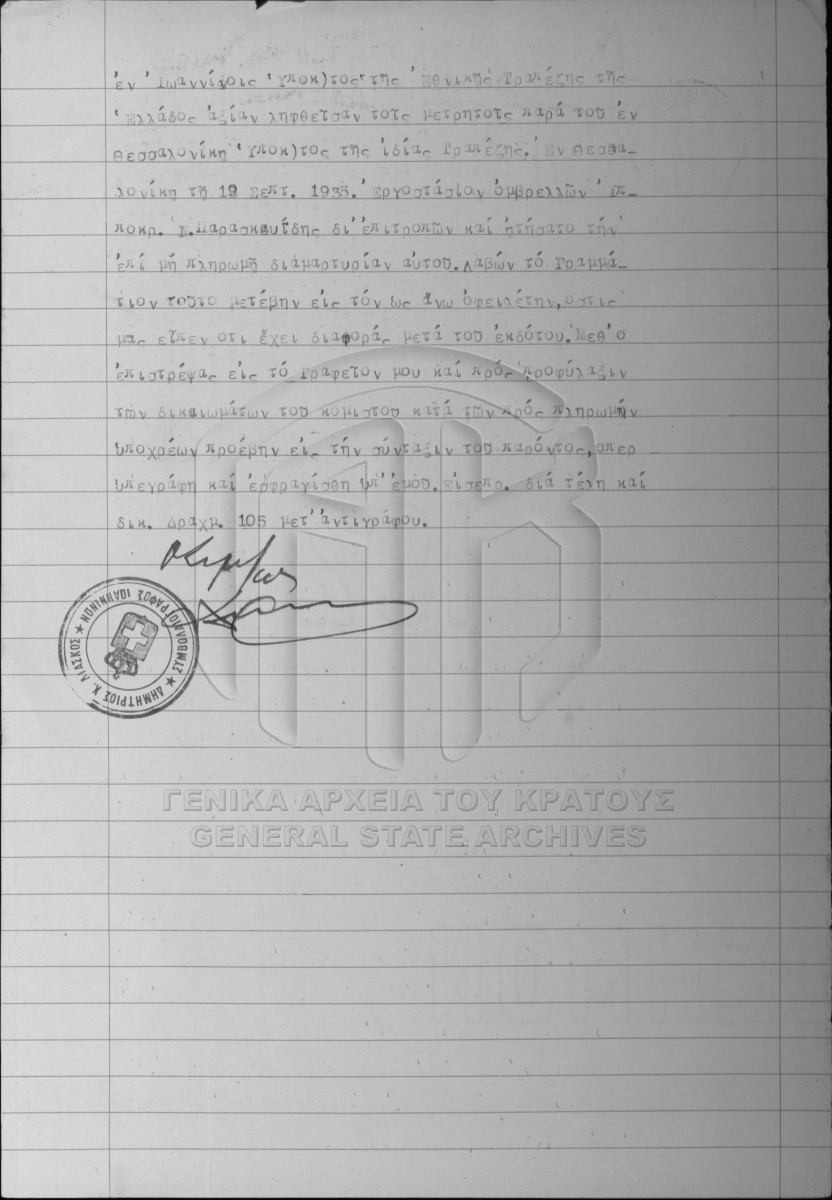 ἐν Ἰωαννίνοις Ὑποκ)τος τῆς Ἐθνικῆς Τραπέζης τῆς
Ἑλλάδος ἀξίαν ληφθεῖσαν τοῖς μετρητοῖς παρά τοῦ ἐν
Θεσσαλονίκῃ Ὑποκ)τος τῆς ἰδίας Τραπέζης. Ἐν Θεσσα-
λονίκῃ τῇ 12 Σεπτ. 1935. Ἐργοστάσιον ὀμβρελλῶν Ἱπ-
ποκρ. Ν. Παρασκευΐδης δι' ἐπιτροπῶν καί ᾐτήσατο τήν
ἐπί μή πληρωμῇ διαμαρτυρίαν αὐτοῦ. Λαβών τό Γραμμά-
τιον τοῦτο μετέβην εἰς τόν ὡς ἄνω ὀφειλέτην, ὅστις
μας εἶπεν οτι ἔχει διαφοράς μετά τοῦ ἐκδότου. Μεθ' ὅ
ἐπιστρέψας εἰς τό Γραφεῖον μου καί πρός προφύλαξιν
τῶν δικαιωμάτων τοῦ κομιστοῦ κατά τῶν πρός πληρωμήν
ὑποχρέων προέβην εἰς τήν σύνταξιν τοῦ παρόντος, ὅπερ
ὑπεγράφη καί ἐσφραγίσθη ὑπ' ἐμοῦ. Εἰσεπρ. διά τέλη καί
δικ. Δραχμ. 105 μετ' ἀντιγράφου.
ΣΥΜΒΟΛΑΙΟΓΡΑΦΟΣ ΙΩΑΝΝΙΝΩΝ
★ ΔΗΜΗΤΡΙΟΣ Κ. ΛΙΑΣΚΟΣ ★
ΓΕΝΙΚΑ ΑΡΧΕΙΑ ΤΟΥ ΚΡΑΤΟΥΣ
GENERAL STATE ARCHIVES